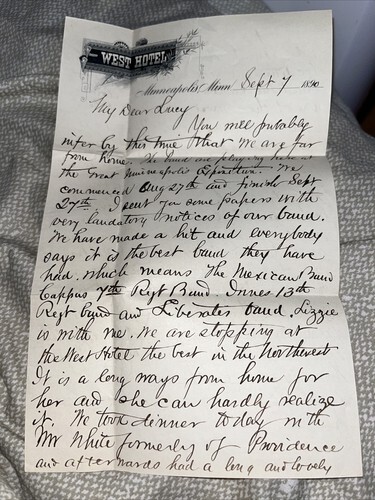 WEST HOTEL
Minneapolis, Minn Sept 7 1890
My Dear Lucy
You will probably
infer by this time that we are far
from home. The band are playing here at
the Great Minneapolis Exposition. We
commenced Aug 27th and finish Sept
27th. I sent you some papers with
very laudatory notices of our band.
We have made a hit and everybody
says it is the best band they have
had. which means The Mexican Band
Cappas 7th Regt Band. Innes 13th
Regt band and Liberates band. Lizzie
is with me. We are stopping at
the West Hotel the best in the Northwest
It is a long ways from home for
her and she can hardly realize
it. We took dinner today with
Mr White formerly of Providence
and afterwards had a long and lovely